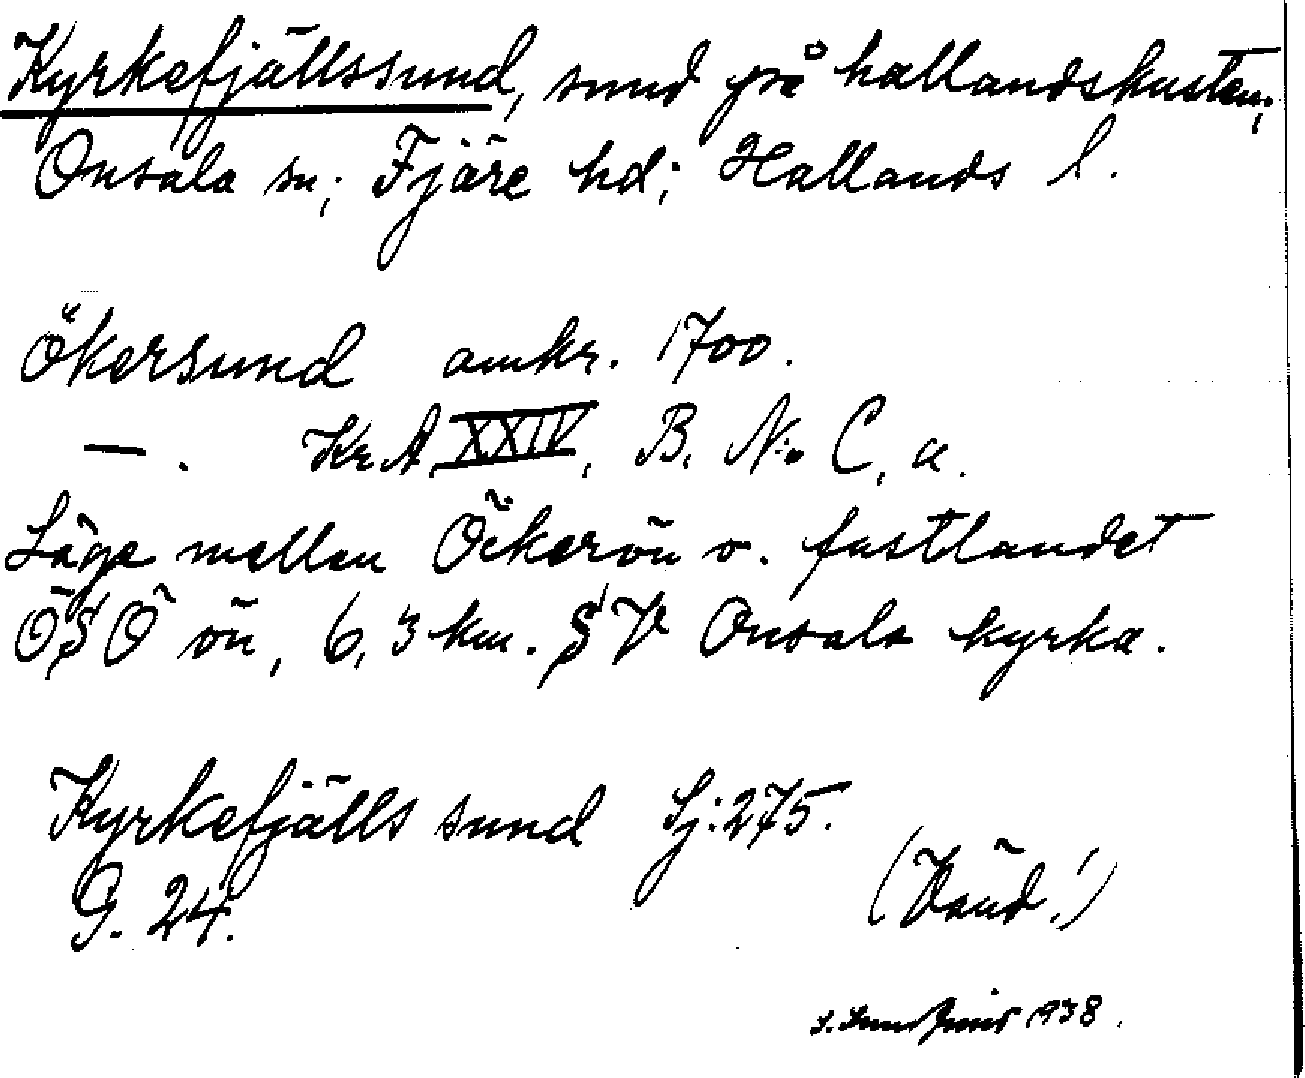 Kyrkefjällssund, sund på hallandskusten;
Onsala sn; Fjäre hd; Hallands l.
Ökersund omkr. 1700.
— . Kr.A. XXIV, B. N:o C, a.
Läge mellan Öckerön o. fastlandet
ÖSÖ ön, 6,3 km. SV Onsala kyrka.
Kyrkefjälls sund Sj:275.
G. 24.
(Vänd!)
1938.